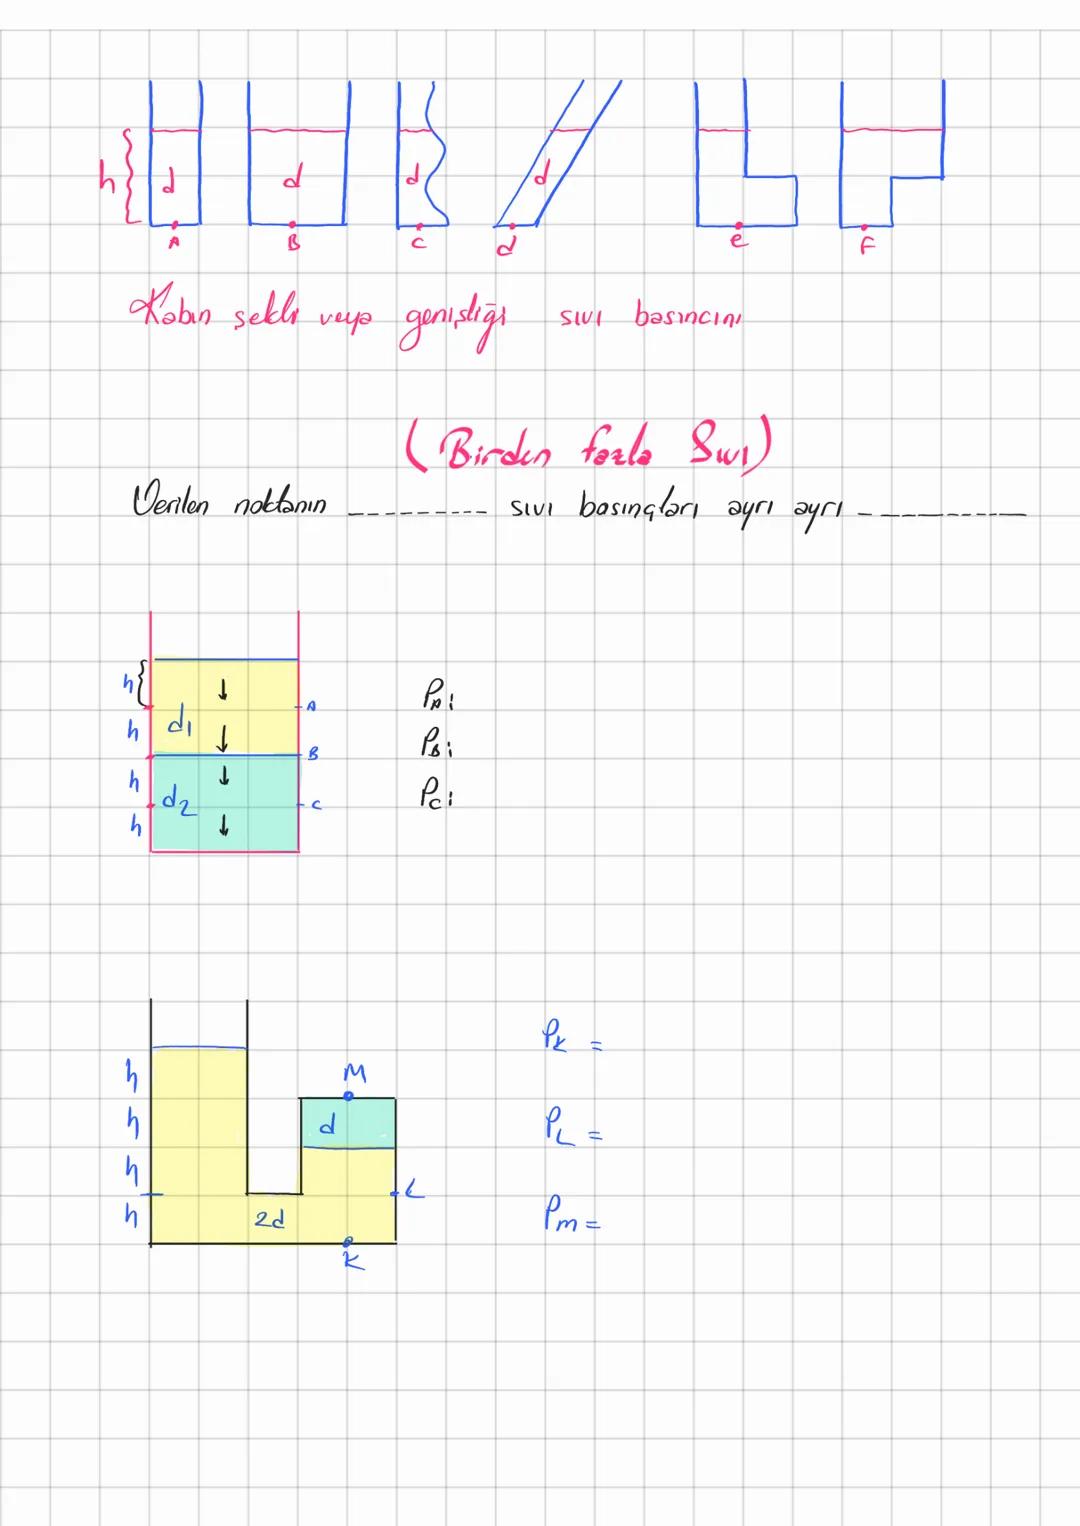 h d d d d
A B C d e F
Kabın şekli veya genişliği sıvı basıncını
(Birden fazla Sıvı)
Verilen noktanın ---------- sıvı basınçları ayrı ayrı -----------
h A
h d1 B
h d2 C
h
PA:
PB:
PC:
h
h
h
h
M
d
L
2d
K
PK =
PL =
Pm =